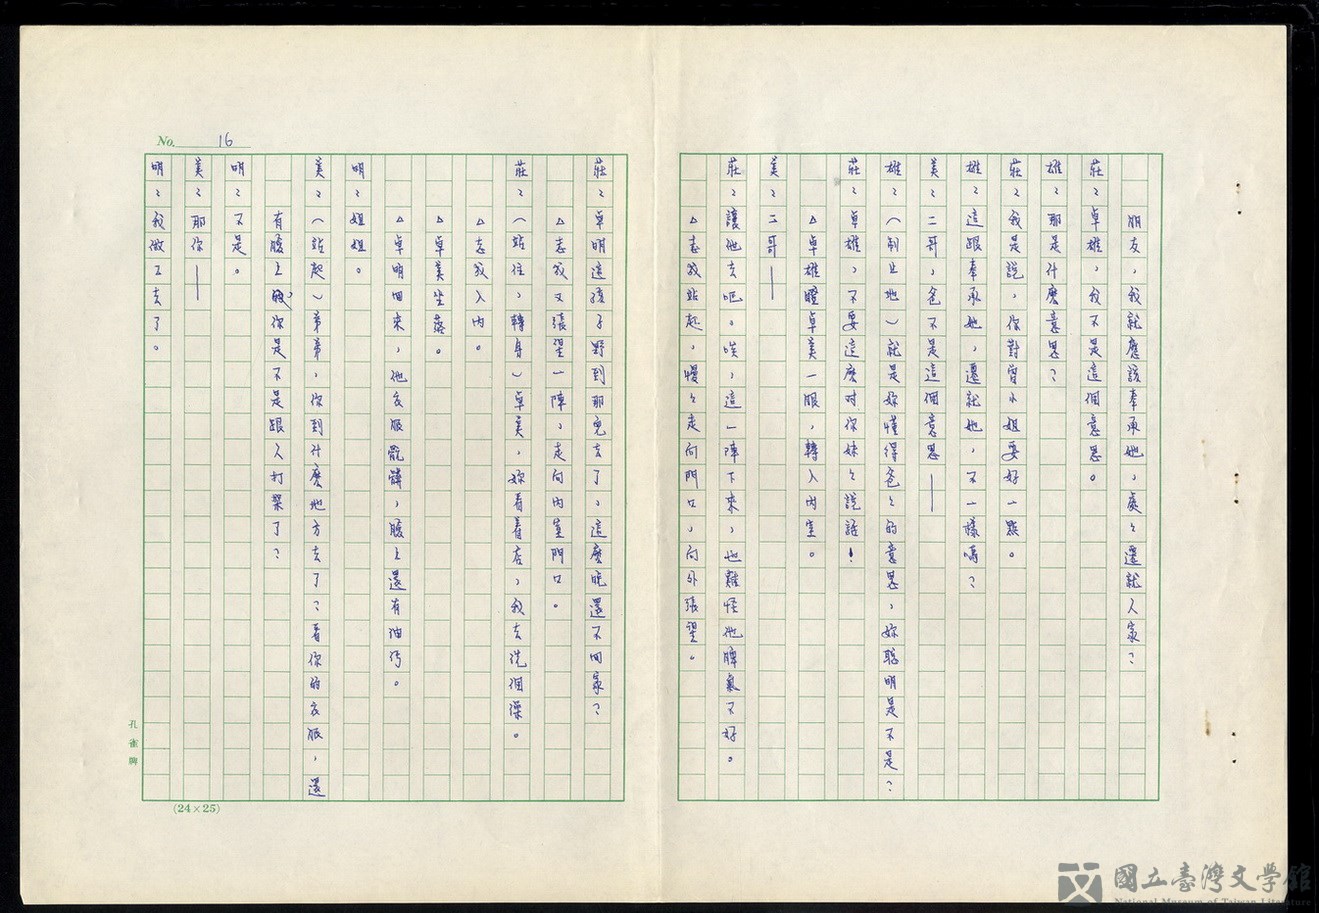 No. 16
朋友，我就應該奉承她，處處遷就人家？
莊：卓雄，我不是這個意思。
雄：那是什麼意思？
莊：我是說，你對曾小姐要好一點。
雄：這跟奉承她，遷就她，不一樣嗎？
美：二哥，爸不是這個意思——
雄：（制止地）就是妳懂得爸爸的意思，妳聰明是不是？
莊：卓雄，不要這麼對你妹妹說話！
△卓雄瞪卓美一眼，轉入內室。
美：二哥——
莊：讓他去吧。唉，這一陣下來，也難怪他脾氣不好。
△志我站起，慢慢走向門口，向外張望。
莊：卓明這孩子野到那兒去了，這麼晚還不回家？
△志我又張望一陣，走向內室門口。
莊：（站住，轉身）卓美，妳看着店，我去洗個澡。
△志我入內。
△卓美坐落。
△卓明回來，他衣服骯髒，臉上還有油污。
明：姐姐。
美：（站起）弟弟，你到什麼地方去了？看你的衣服，還
有臉上，你是不是跟人打架了？
明：不是。
美：那你——
明：我做工去了。
孔雀牌
(24×25)
國立臺灣文學館
National Museum of Taiwan Literature